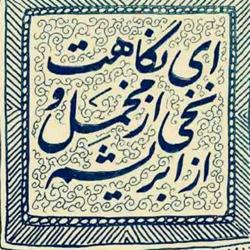 ای نگاهت
نخی از مخمل و
از ابریشم